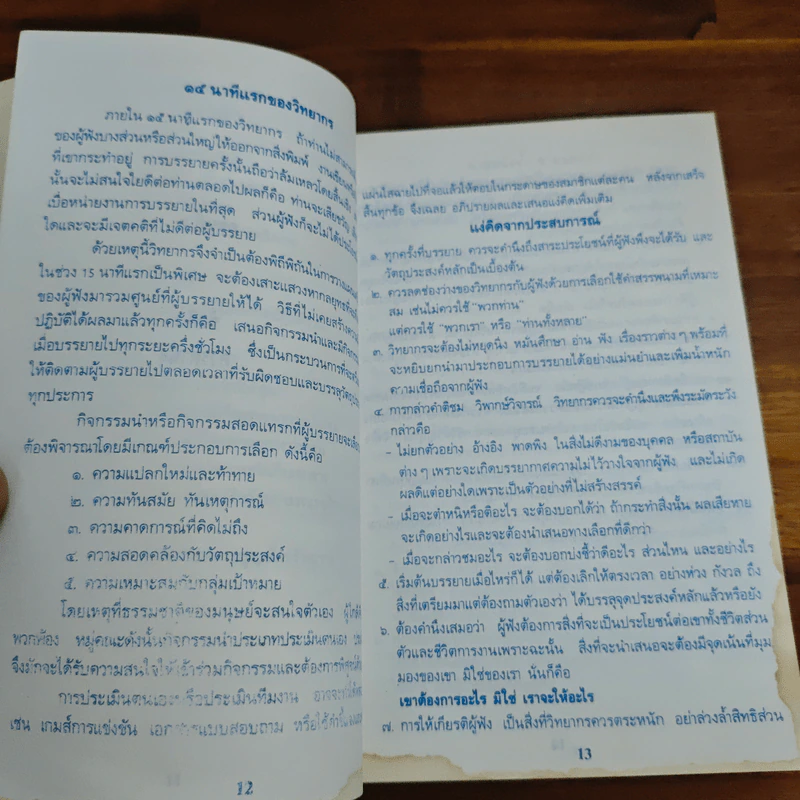 ๑๕ นาทีแรกของวิทยากร
ภายใน ๑๕ นาทีแรกของวิทยากร ถ้าท่านไม่สามารถ
ของผู้ฟังบางส่วนหรือส่วนใหญ่ให้ออกจากสิ่งพิมพ์ งาน
ที่เขากระทำอยู่ การบรรยายครั้งนั้นถือว่าล้มเหลวโดยสิ้นเชิง
นั้นจะไม่สนใจไยดีต่อท่านตลอดไปผลก็คือ ท่านจะเสียขวัญ
เบื่อหน่ายงานการบรรยายในที่สุด ส่วนผู้ฟังก็จะไม่ได้
ใดและจะมีเจตคติที่ไม่ดีต่อผู้บรรยาย
ด้วยเหตุนี้วิทยากรจึงจำเป็นต้องพิถีพิถันในการวางแผน
ในช่วง 15 นาทีแรกเป็นพิเศษ จะต้องเสาะแสวงหากลยุทธ
ของผู้ฟังมารวมศูนย์ที่ผู้บรรยายให้ได้ วิธีที่ไม่เคยสร้างความ
ปฏิบัติได้ผลมาแล้วทุกครั้งก็คือ เสนอกิจกรรมนำและมี
เมื่อบรรยายไปทุกระยะครึ่งชั่วโมง ซึ่งเป็นกระบวนการที่จะ
ให้ติดตามผู้บรรยายไปตลอดเวลาที่รับผิดชอบและบรรลุ
ทุกประการ
กิจกรรมนำหรือกิจกรรมสอดแทรกที่ผู้บรรยายจะ
ต้องพิจารณาโดยมีเกณฑ์ประกอบการเลือก ดังนี้คือ
๑. ความแปลกใหม่และท้าทาย
๒. ความทันสมัย ทันเหตุการณ์
๓. ความคาดการณ์ที่คิดไม่ถึง
๔. ความสอดคล้องกับวัตถุประสงค์
๕. ความเหมาะสมกับกลุ่มเป้าหมาย
โดยเหตุที่ธรรมชาติของมนุษย์จะสนใจตัวเอง
พวกพ้อง หมู่คณะดังนั้นกิจกรรมนำประเภทประเมินตนเอง
จึงมักจะได้รับความสนใจให้เข้าร่วมกิจกรรมและต้องการ
การประเมินตนเองหรือประเมินทีมงาน
เช่น เกมส์การแข่งขัน เอกสารแบบสอบถาม หรือใช้
12
แผ่นใสฉายไปที่จอแล้วให้ตอบในกระดาษของสมาชิกแต่ละคน หลังจากเสร็จ
สิ้นทุกข้อ จึงเฉลย อภิปรายผลและเสนอแง่คิดเพิ่มเติม
แง่คิดจากประสบการณ์
๑. ทุกครั้งที่บรรยาย ควรจะคำนึงถึงสาระประโยชน์ที่ผู้ฟังพึงจะได้รับ และ
วัตถุประสงค์หลักเป็นเบื้องต้น
๒. ควรลดช่องว่างของวิทยากรกับผู้ฟังด้วยการเลือกใช้คำสรรพนามที่เหมาะ
สม เช่นไม่ควรใช้ "พวกท่าน"
แต่ควรใช้ "พวกเรา" หรือ "ท่านทั้งหลาย"
๓. วิทยากรจะต้องไม่หยุดนิ่ง หมั่นศึกษา อ่าน ฟัง เรื่องราวต่าง ๆ พร้อมที่
จะหยิบยกนำมาประกอบการบรรยายได้อย่างแม่นยำและเพิ่มน้ำหนัก
ความเชื่อถือจากผู้ฟัง
๔. การกล่าวคำติชม วิพากษ์วิจารณ์ วิทยากรควรจะคำนึงและพึงระมัดระวัง
กล่าวคือ
- ไม่ยกตัวอย่าง อ้างอิง พาดพิง ในสิ่งไม่ดีงามของบุคคล หรือสถาบัน
ต่าง ๆ เพราะจะเกิดบรรยากาศความไม่ไว้วางใจจากผู้ฟัง และไม่เกิด
ผลดีแต่อย่างใดเพราะเป็นตัวอย่างที่ไม่สร้างสรรค์
- เมื่อจะตำหนิหรือติอะไร จะต้องบอกได้ว่า ถ้ากระทำสิ่งนั้น ผลเสียหาย
จะเกิดอย่างไรและจะต้องนำเสนอทางเลือกที่ดีกว่า
- เมื่อจะกล่าวชมอะไร จะต้องบอกบ่งชี้ว่าดีอะไร ส่วนไหน และอย่างไร
๕. เริ่มต้นบรรยายเมื่อไหร่ก็ได้ แต่ต้องเลิกให้ตรงเวลา อย่าห่วง กังวล ถึง
สิ่งที่เตรียมมาแต่ต้องถามตัวเองว่า ได้บรรลุจุดประสงค์หลักแล้วหรือยัง
๖. ต้องคำนึงเสมอว่า ผู้ฟังต้องการสิ่งที่จะเป็นประโยชน์ต่อเขาทั้งชีวิตส่วน
ตัวและชีวิตการงานเพราะฉะนั้น สิ่งที่จะนำเสนอจะต้องมีจุดเน้นที่มุม
มองของเขา มิใช่ของเรา นั่นก็คือ
เขาต้องการอะไร มิใช่ เราจะให้อะไร
๗. การให้เกียรติผู้ฟัง เป็นสิ่งที่วิทยากรควรตระหนัก อย่าล่วงล้ำสิทธิส่วน
13